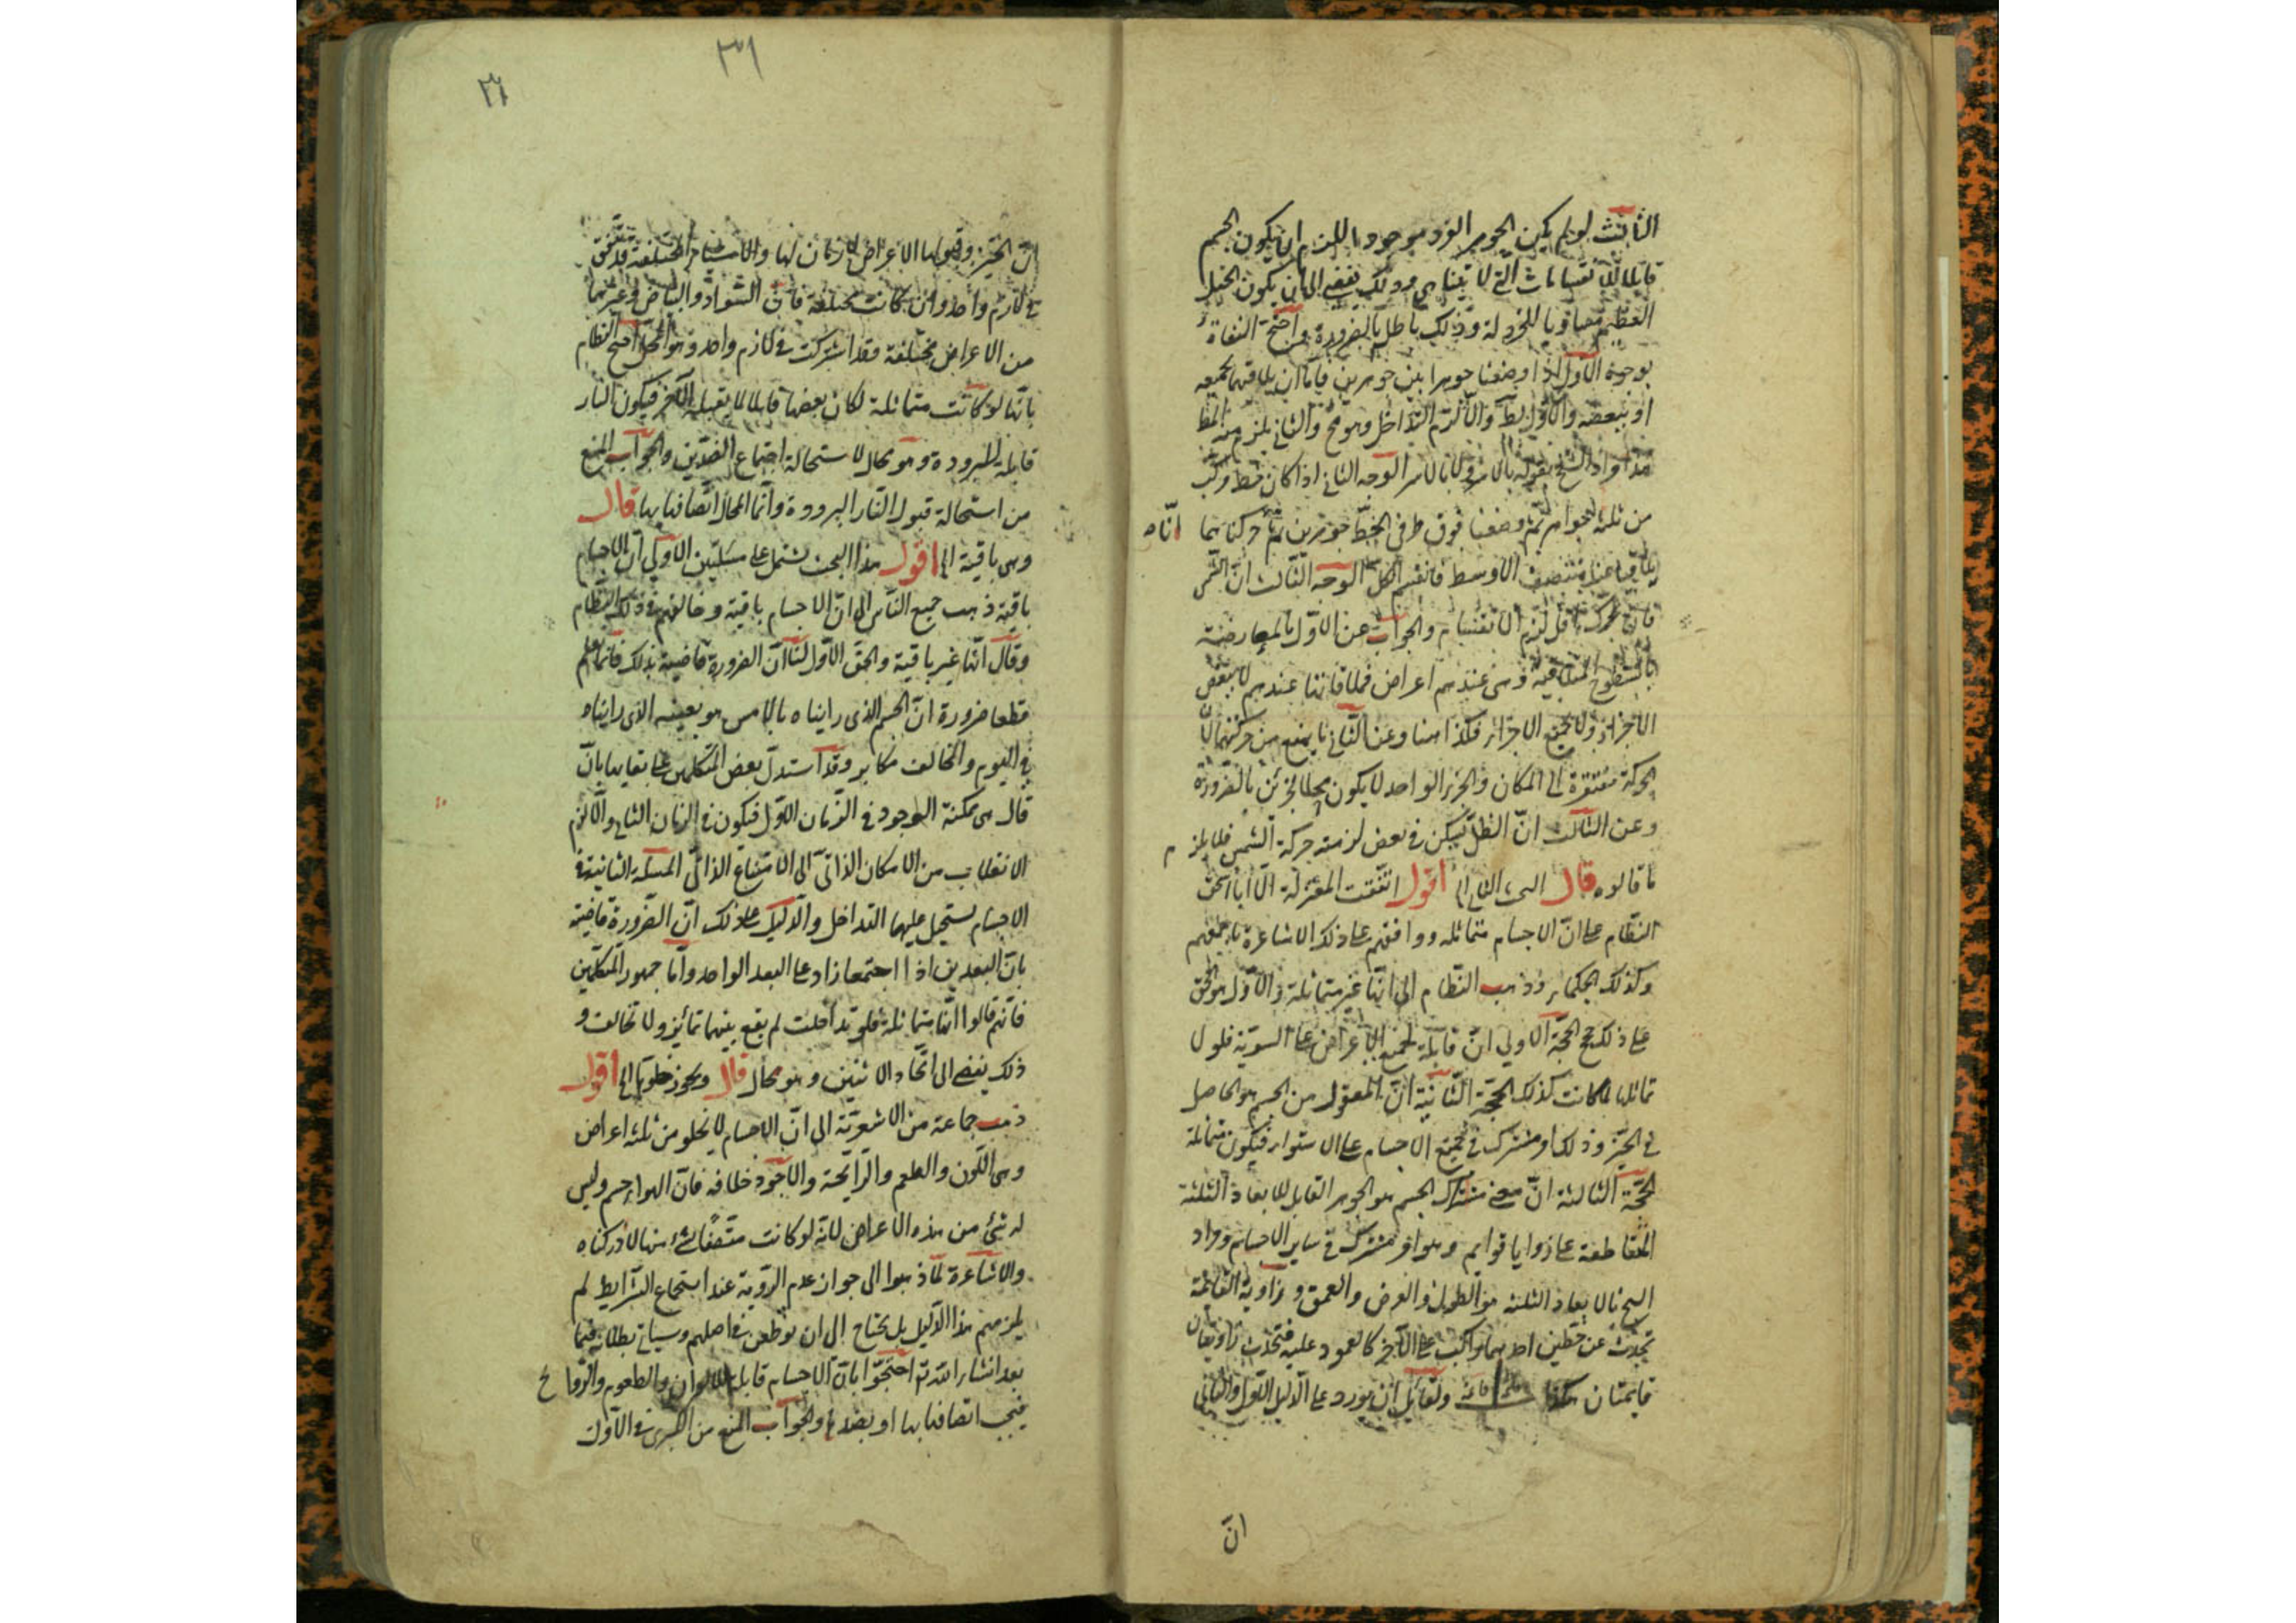 الثالث لو لم يكن الجوهر الفرد موجودا للزم ان يكون الجسم
قابلا للانقسامات التي لا تتناهى وذلك يفضي الى ان يكون الجبل
العظيم مساويا للخردلة وذلك باطل بالضرورة واحتج النفاة
بوجوه الاول اذا وضعنا جوهرا بين جوهرين فاما ان يلاقيهما بجميعه
او ببعضه والاول بط والا لزم التداخل وهو مح والثاني يلزم منه المط
هذا مراد الشيخ بقوله بالاسر الوجه الثاني اذا كان خط مركب
من ثلثة جواهر ثم وضعنا فوق طرفي الخط جوهرين ثم حركناهما
انّاه
عند منتصف الاوسط فانقسم الكل الوجه الثالث ان الشمس
فان تحرك اقل لزم الانقسام والجواب عن الاول بالمعارضة
بالسطوح المتلاقية وهي عندهم اعراض فملاقاتنا عندهم لا ببعض
الاجزاء ولا بجميع الاجزاء فكذا هنا وعن الثاني نا يمنع من حركتهما لان
الحركة مفتقرة الى المكان والجزء الواحد لا يكون محلا لجزئين بالضرورة
وعن الثالث ان الظل يسكن في بعض ازمنة حركة الشمس فلا يلزم
ما قالوه قال البحث الثاني الخ اقول اتفقت المعتزلة الا ابا اسحق
النظام على ان الاجسام متماثلة ووافقهم على ذلك الاشاعرة باجمعهم
وكذلك الحكماء وذهب النظام الى انها غير متماثلة والاول هو الحق
على ذلك حجج الحجة الاولى ان قابلة لجميع الاعراض على السوية فلولا
تماثلها لما كانت كذلك الحجة الثانية ان المعقول من الجسم هو الحاصل
في الحيز وذلك امر مشترك في جميع الاجسام على الاستواء فيكون متماثلة
الحجة الثالثة ان معنى الجسم هو الجوهر القابل للابعاد الثلثة
المتقاطعة على زوايا قوايم وهو امر مشترك في ساير الاجسام ومراد
الشيخ بالابعاد الثلثة هو الطول والعرض والعمق وزاوية القائمة
تحدث عن خطين احدهما واكب على الآخر كالعمود عليه فتحدث زاويتان
قايمتان هكذا قائمة قائمة ولقايل ان يورد على الدليل الاول والثاني
ان
٣١
٣١
ان الحيز وقبولها الاعراض لازمان لها والاشياء المختلفة قد تتفق
في لازم واحد وان كانت مختلفة فان السواد والبياض وغيرهما
من الاعراض مختلفة وقد اشتركت في لازم واحد وهو المحل احتج النظام
بانها لو كانت متماثلة لكان بعضها قابلا لما يقبله الآخر فيكون النار
قابلة للبرودة وهو محال لاستحالة اجتماع الضدين والجواب المنع
من استحالة قبول النار البرودة وانما المحال اتصافها بها قال
وهي باقية الخ اقول هذا البحث يشتمل على مسئلتين الاولى ان الاجسام
باقية ذهب جميع الناس الى ان الاجسام باقية وخالفهم في ذلك النظام
وقال انها غير باقية والحق الاول لنا ان الضرورة قاضية بذلك فانا نعلم
قطعا ضرورة ان الجسم الذي رايناه بالامس هو بعينه الذي رايناه
في اليوم والمخالف مكابر وقد استدل بعض المتكلمين على بقايها بان
قال هي ممكنة الوجود في الزمان الاول فيكون في الزمان الثاني والا لزم
الانقلاب من الامكان الذاتي الى الامتناع الذاتي المسئلة الثانية في
الاجسام يستحيل عليها التداخل والدليل على ذلك ان الضرورة قاضية
بان البعدين اذا اجتمعا زاد على البعد الواحد واما جمهور المتكلمين
فانهم قالوا انها متماثلة فلو تداخلت لم يقع بينها تمايز ولا تخالف و
ذلك يفضي الى اتحاد الاثنين وهو محال قال ويجوز خلوها الخ اقول
ذهب جماعة من الاشعرية الى ان الاجسام لا تخلو من ثلثة اعراض
وهي اللون والطعم والرايحة والاجود خلافه فان الهواء جسم وليس
له شئ من هذه الاعراض لانه لو كانت متصفا بشئ منها لادركناه
والاشاعرة لما ذهبوا الى جواز عدم الروية عند اجتماع الشرايط لم
يلزمهم هذا الدليل بل يحتاج الى ان نطعن في اصلهم وسياتي بطلانه فيما
بعد انشاء الله تع احتجوا بان الاجسام قابلة للالوان والطعوم والروائح
فيجب اتصافها بها او بضدها والجواب المنع من الكبرى في الاول